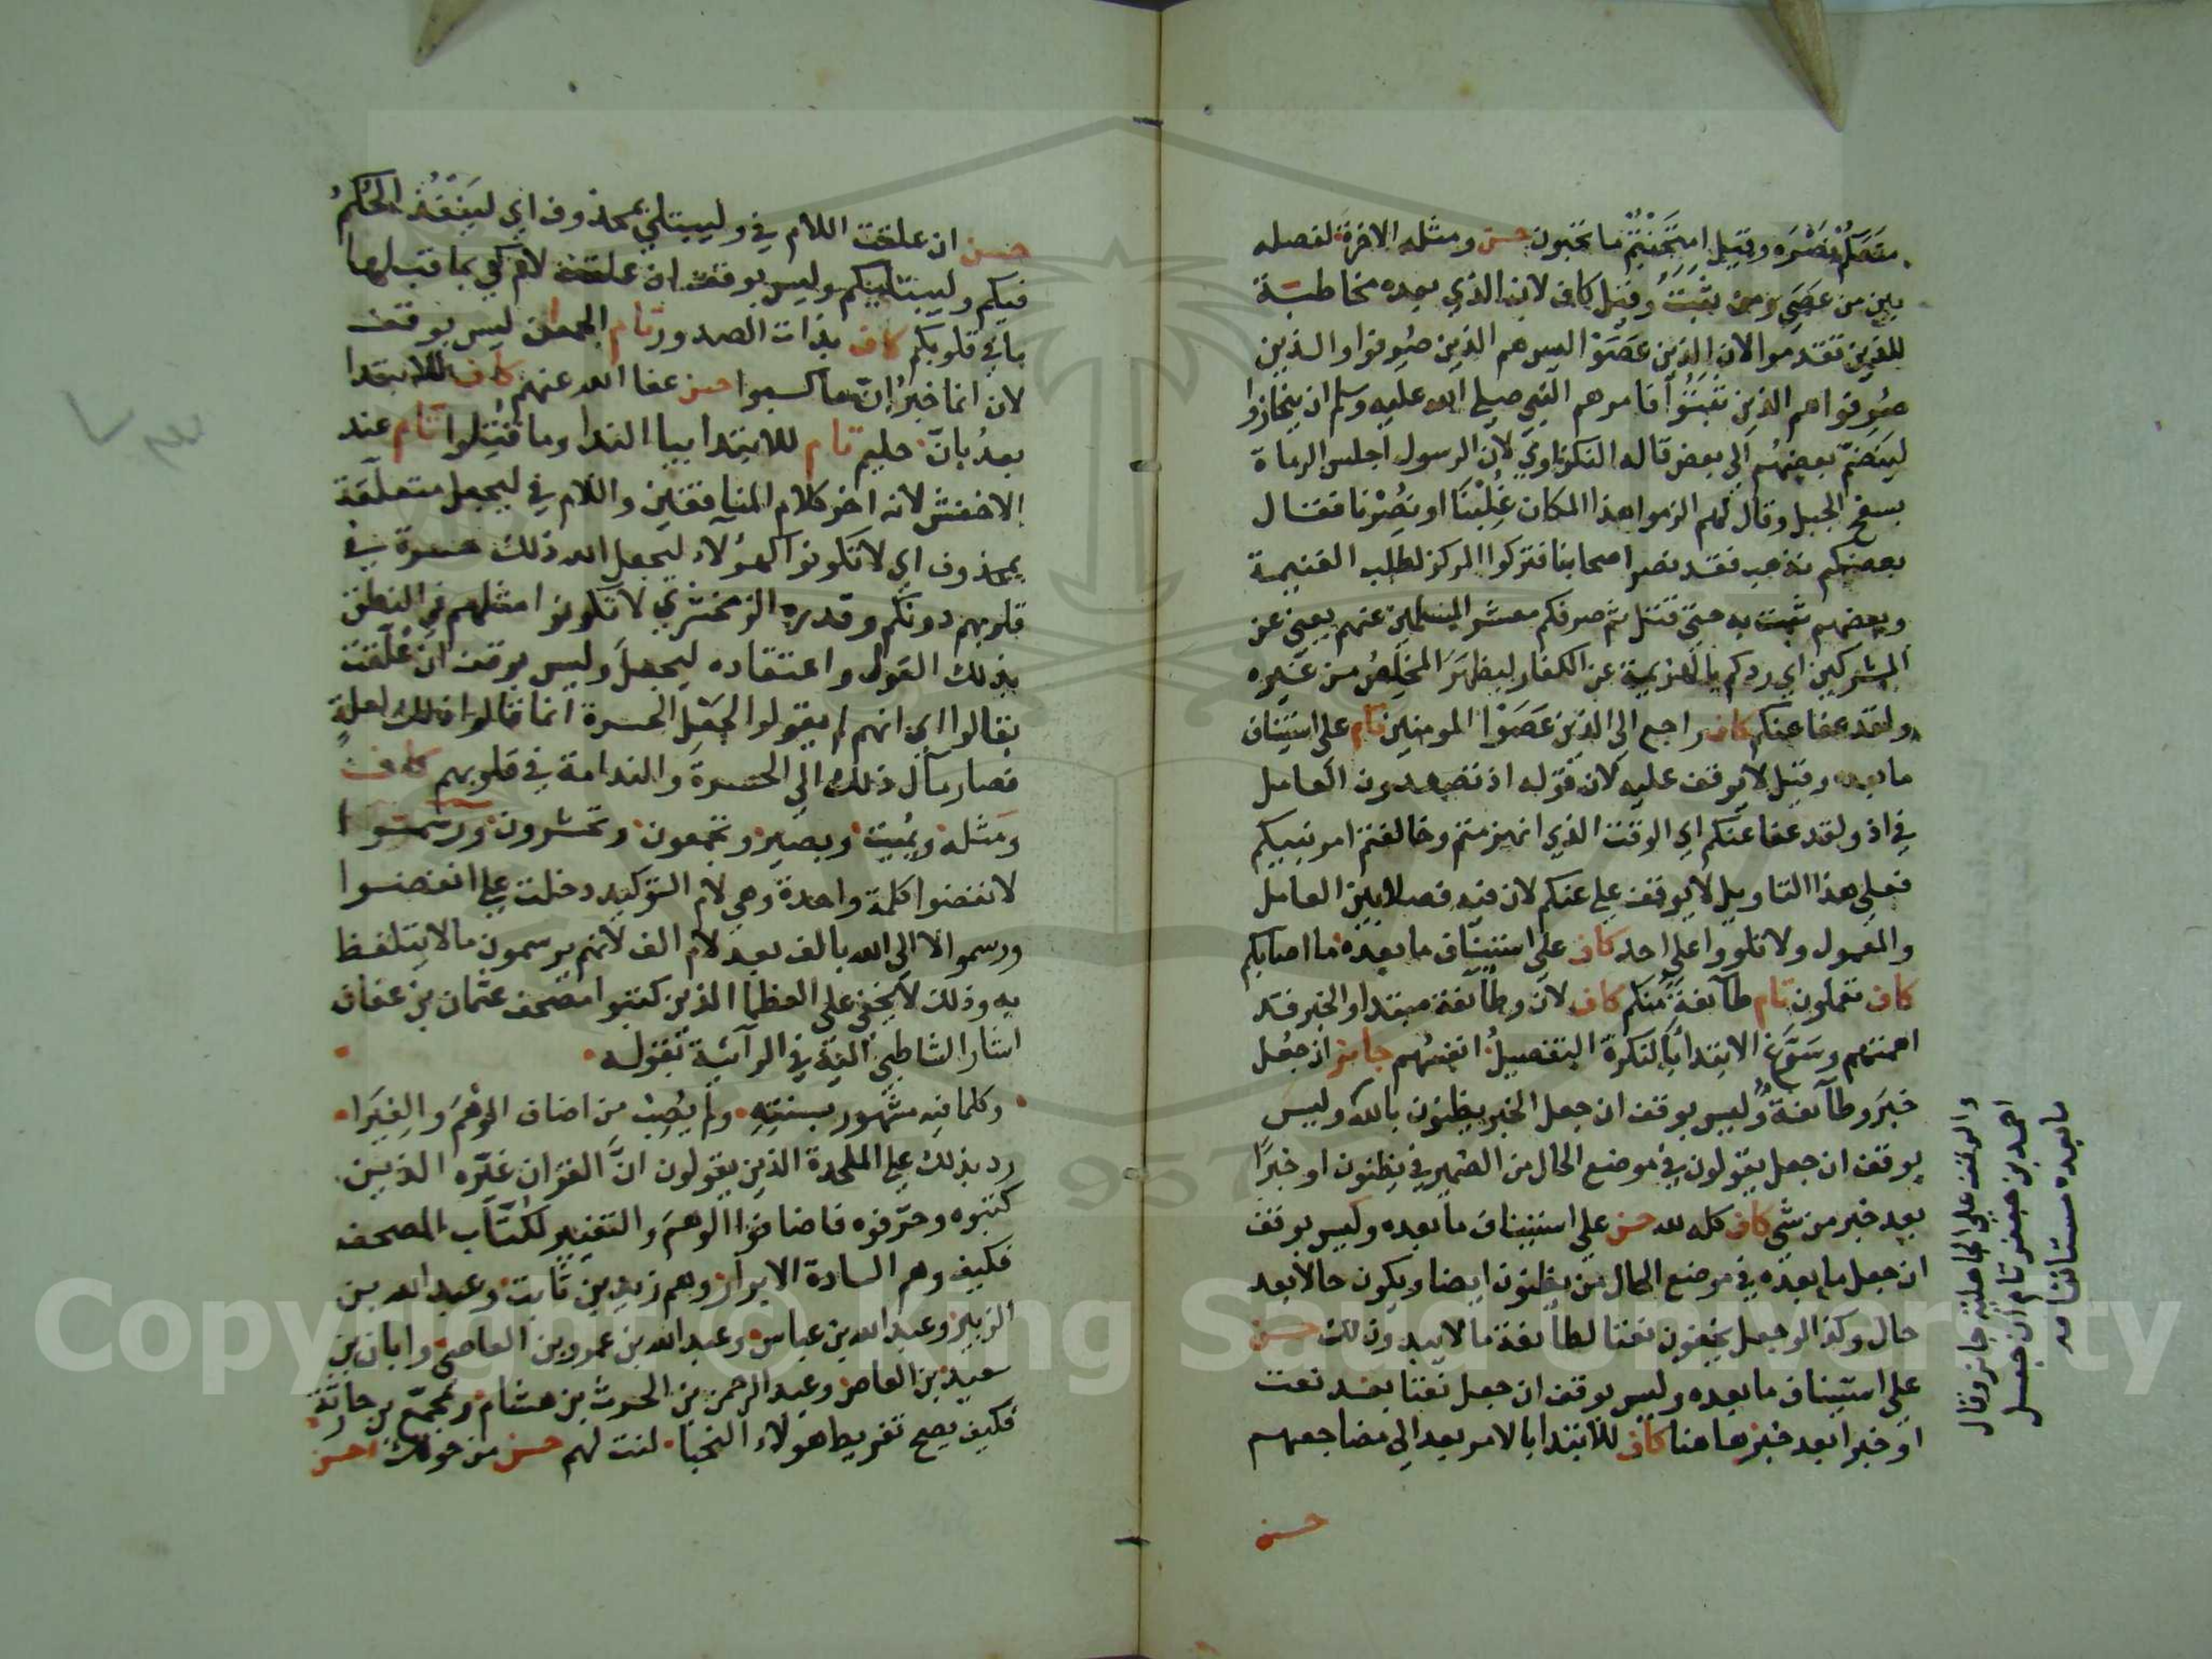 منعكم نصره وقيل امتحنتم ما تحبون حسن ومثله الاخرة لفصله
بين من عصى ومن ثبت وقيل كاف لان الذي بعده مخاطبة
للذين تقدموا لان الذين عصوا ليس هم الذين صرفوا والذين
صرفوا هم الذين ثبتوا فامرهم النبي صلى الله عليه وسلم ان ينحازوا
لينضم بعضهم الى بعض قاله النكزاوي لان الرسول اجلس الرماة
بسفح الجبل وقال لهم الزموا هذا المكان غلبنا او نصرنا فقال
بعضهم نذهب فقد نصر اصحابنا فتركوا المركز لطلب الغنيمة
وبعضهم ثبت به حتى قتل ثم صرفكم معشر المسلمين عنهم يعني عن
المشركين اي ردكم بالهزيمة عن الكفار ليظهر المخلص من غيره
ولقد عفا عنكم كاف راجع الى الذين عصوا المومنين تام على استيناف
ما بعده وقيل لا يوقف عليه لان قوله اذ تصعدون العامل
في اذ ولقد عفا عنكم اي الوقت الذي انهزمتم وخالفتم امر نبيكم
فعلى هذا التاويل لا يوقف على عنكم لان فيه فصلا بين العامل
والمعمول ولا تلووا على احد كاف على استيناف ما بعده ما اصابكم
كاف تعملون تام طآئفة منكم كاف لان وطآئفة مبتدا والخبر قد
اهمتهم وسوغ الابتدا بالنكرة التفصيل انفسهم جايز ان جعل
خبر وطآئفة وليس بوقف ان جعل الخبر يظنون بالله وليس
بوقف ان جعل يقولون في موضع الحال من الضمير في يظنون او خبرا
بعد خبر من شي كاف كله لله حسن على استيناف ما بعده وليس بوقف
ان جعل ما بعده في موضع الحال من يظنون ايضا ويكون حالا بعد
حال وكذا لو جعل يخفون نعتا لطآئفة ما لا يبدون لك حسن
على استيناف ما بعده وليس بوقف ان جعل نعتا بعد نعت
او خبرا بعد خبر هاهنا كاف للابتدا بالامر بعد الى مضاجعهم
حسن
والوقف على الجاهلية جايز وقال
احمد بن جعفر تام ان جعل
ما بعده مستانفا
حسن ان علقت اللام في وليبتلي بمحذوف اي لينفذ الحكم
فيكم وليبتليكم وليس بوقف ان علقت لام كي بما قبلها
ما في قلوبكم كاف بذات الصدور تام الجمعان ليس بوقف
لان انما خبر ان ما كسبوا حسن عفا الله عنهم كاف للابتدا
بعد بان حليم تام للابتدا بيا الندا وما قتلوا تام عند
الاخفش لانه اخر كلام المنافقين واللام في ليجعل متعلقة
بمحذوف اي لا تكونوا كهؤلاء ليجعل الله ذلك حسرة في
قلوبهم دونكم وقدره الزمخشري لا تكونوا مثلهم في النطق
بذلك القول واعتقاده ليجعل وليس بوقف ان علقت
بقالوا اي انهم لم يقولوا لجعل الحسرة انما قالوا ذلك لعلة
فصار مآل ذلك الى الحسرة والندامة في قلوبهم كاف
ومثله ويميت وبصير وتجمعون وتحشرون ورسموا
لانفضوا كلمة واحدة وهي لام التوكيد دخلت على انفضوا
ورسموا لا الى الله بالف بعد لام الف لانهم يرسمون ما لا يتلفظ
به وذلك لا يخفى على العظما الذين كتبوا مصحف عثمان بن عفان
اشار الشاطبي اليه في الرآئية بقوله
وكلما فيه مشهور بسنته ولم يصب من اضاف الوهم والغيرا
رد بذلك على الملحدة الذين يقولون ان القران غيره الذين
كتبوه وحرفوه فاضافوا الوهم والتغيير لكتاب المصحف
فكيف وهم السادة الابرار وهم زيد بن ثابت وعبد الله بن
الزبير وعبد الله بن عباس وعبد الله بن عمرو بن العاصي وابان بن
سعيد بن العاص وعبد الرحمن بن الحرث بن هشام ومجمع بن حارثة
فكيف يصح تفريط هولاء النخبا لنت لهم حسن من حولك احسن